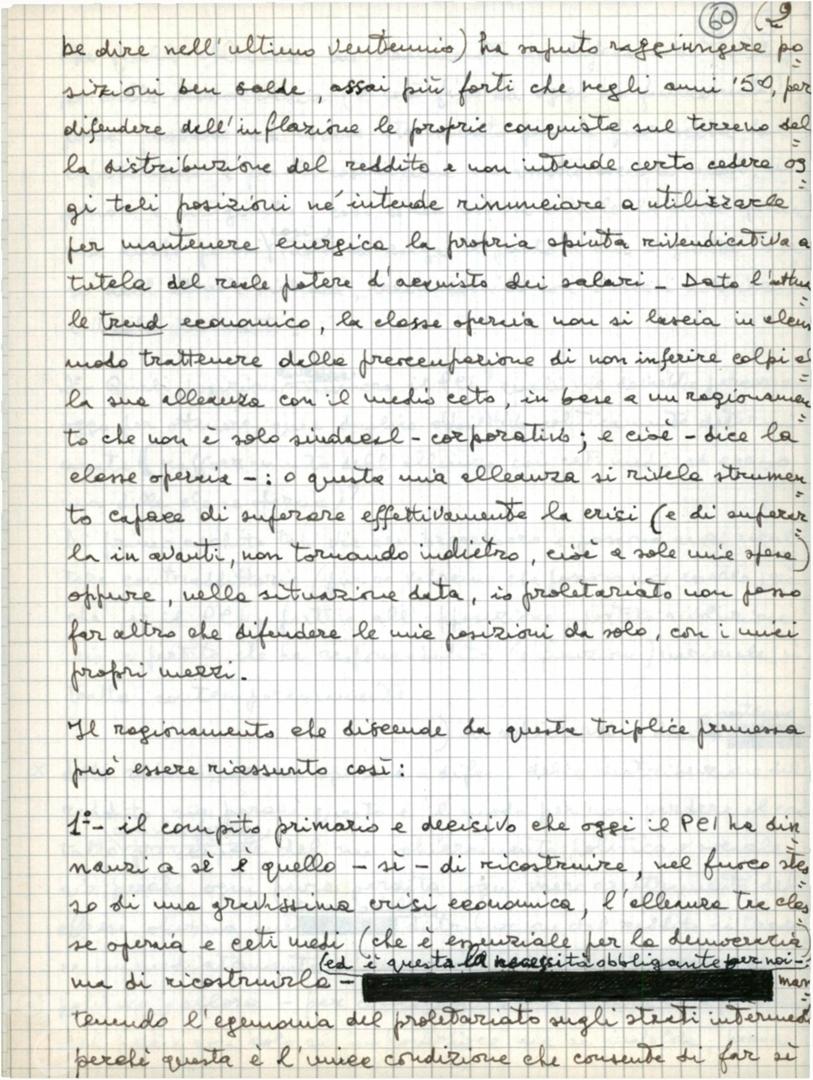 60 (9
be dire nell'ultimo ventennio) ha saputo raggiungere po
sizioni ben salde, assai più forti che negli anni '50, per
difendere dall'inflazione le proprie conquiste sul terreno del
la distribuzione del reddito e non intende certo cedere og
gi tali posizioni né intende rinunciare a utilizzarle
per mantenere energica la propria spinta rivendicativa a
tutela del reale potere d'acquisto dei salari - Dato l'attua
le trend economico, la classe operaia non si lascia in alcun
modo trattenere dalla preoccupazione di non inferire colpi al
la sua alleanza con il medio ceto, in base a un ragionamen
to che non è solo sindacal-corporativo; e cioè - dice la
classe operaia -: o questa mia alleanza si rivela strumen
to capace di superare effettivamente la crisi (e di superar
la in avanti, non tornando indietro, cioè a sole mie spese)
oppure, nella situazione data, io proletariato non posso
far altro che difendere le mie posizioni da solo, con i miei
propri mezzi.
Il ragionamento che discende da questa triplice premessa
può essere riassunto così:
1°- il compito primario e decisivo che oggi il PCI ha din
nanzi a sè è quello - sì - di ricostruire, nel fuoco stes
so di una gravissima crisi economica, l'alleanza tra clas
se operaia e ceti medi (che è essenziale per la democrazia)
(ed è questa la necessità obbligante per noi -
ma di ricostruirla - man
tenendo l'egemonia del proletariato sugli strati intermedi
perchè questa è l'unica condizione che consente di far sì